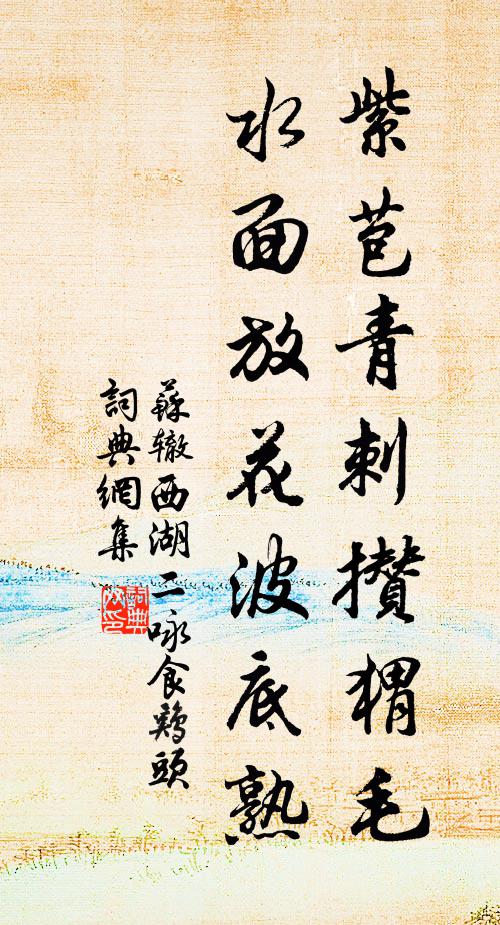 紫苞青刺攅猬毛
水面放花波底熟
蘇辙西湖二咏食鷄頭
詞典網集